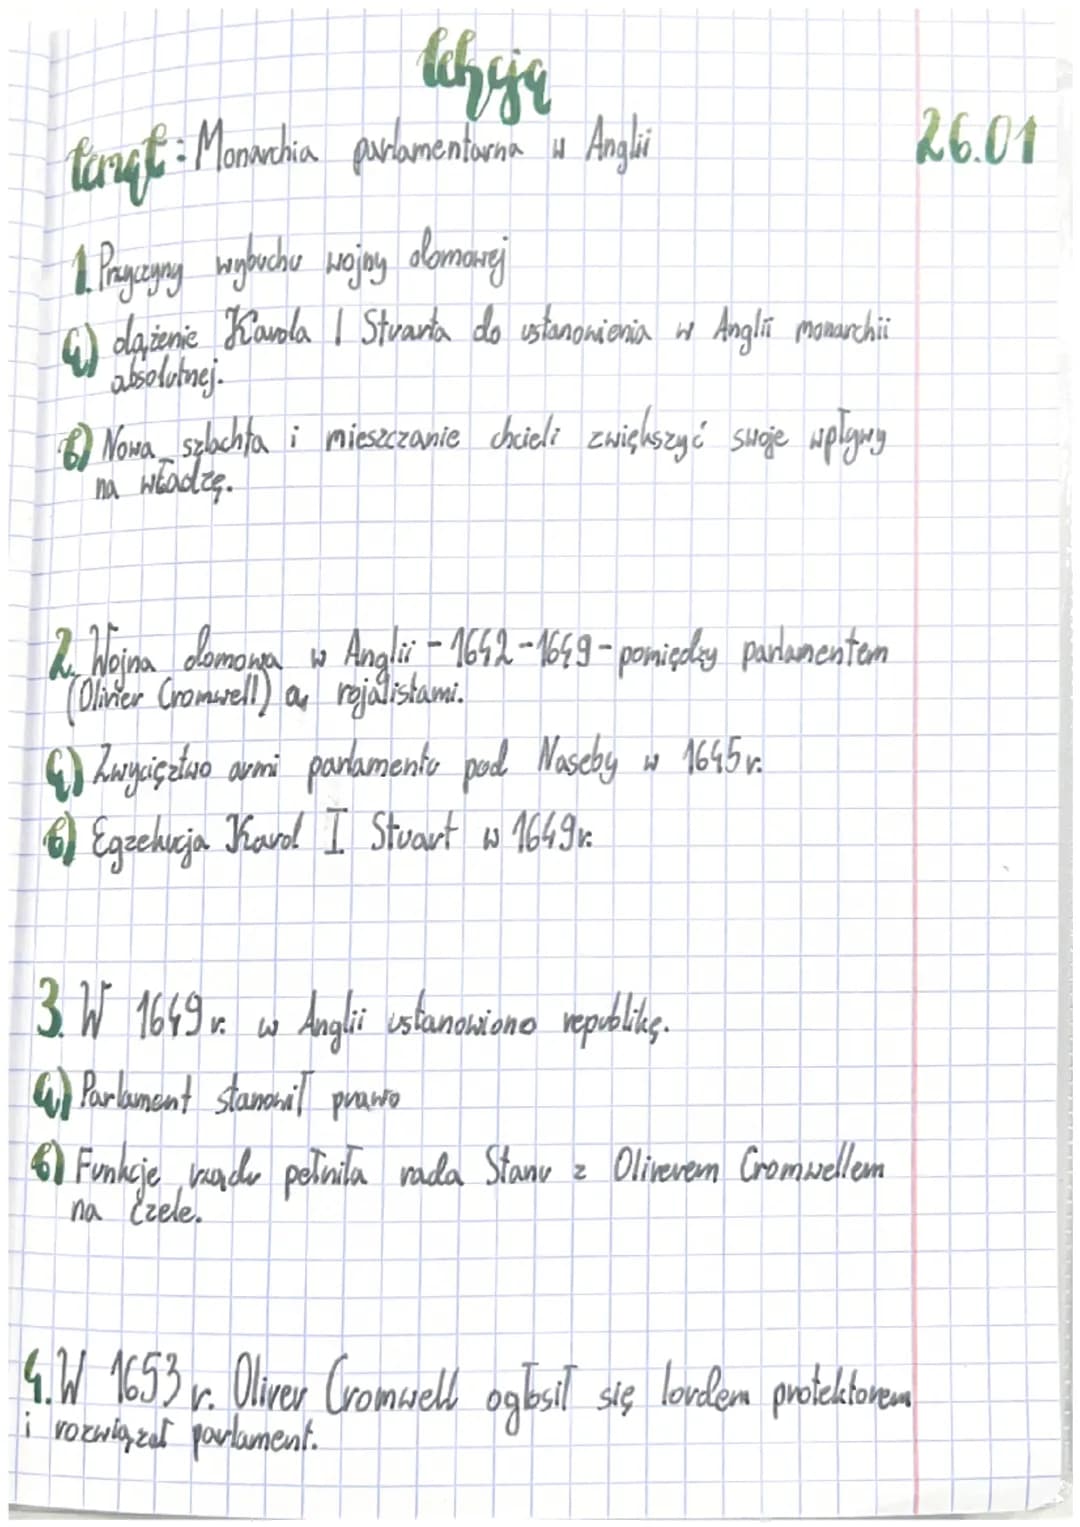 lekcja
temat: Monarchia parlamentarna w Anglii
26.01
1. Przyczyny wybuchu wojny domowej
a) dążenie Karola I Stuarta do ustanowienia w Anglii monarchii
absolutnej.
b) Nowa szlachta i mieszczanie chcieli zwiększyć swoje wpływy
na władzę.
2. Wojna domowa w Anglii - 1642-1649 - pomiędzy parlamentem
(Oliver Cromwell) a rojalistami.
a) Zwycięztwo armi parlamentu pod Naseby w 1645r.
b) Egzekucja Karol I Stuart w 1649r.
3. W 1649r. w Anglii ustanowiono republikę.
a) Parlament stanowił prawo
b) Funkcje rządu pełniła rada Stanu z Oliverem Cromwellem
na czele.
4. W 1653 r. Oliver Cromwell ogłosił się lordem protektorem
i rozwiązał parlament.